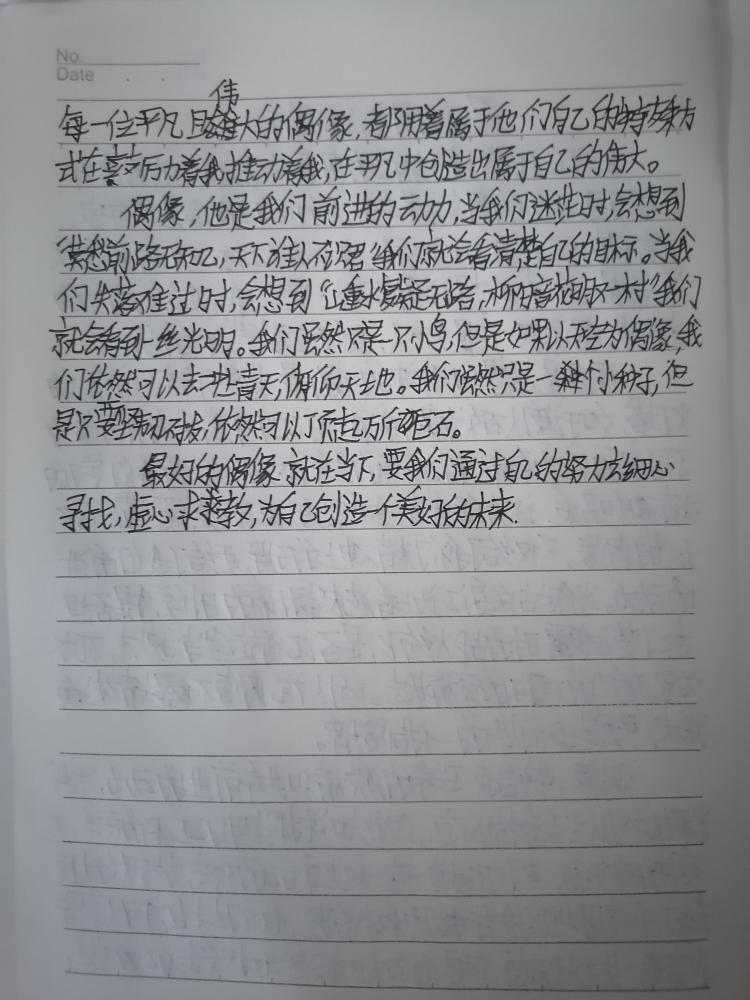 No.
Date . .
伟
每一位平凡且大的偶像,都用着属于他们自己的特有方
式在背后力着我,推动着我,在平凡中创造出属于自己的伟大。
偶像,他是我们前进的动力,当我们迷茫时,会想到
“莫愁前路无知己,天下谁人不识君”我们就会看清楚自己的目标。当我
们失落难过时,会想到“山重水复疑无路,柳暗花明又一村”我们
就会看到一丝光明。我们虽然只是一只小鸟,但是如果以天空为偶像,我
们依然可以去扑青天,俯仰天地。我们虽然只是一个小种子,但
是只要坚韧不拔,依然可以顶起万斤巨石。
最好的偶像就在当下,要我们通过自己的努力去细心
寻找,虚心求教,为自己创造一个美好的未来.